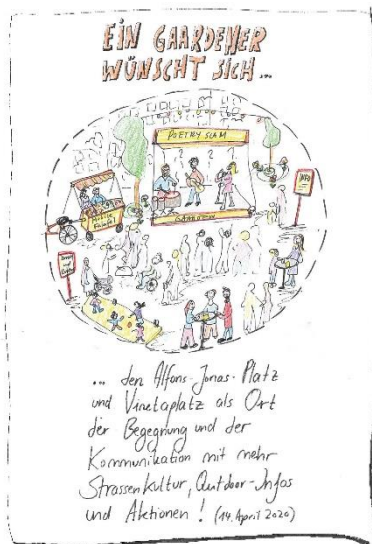 EIN GAARDENER
WÜNSCHT SICH...
POETRY SLAM
INFO
... den Alfons-Jonas-Platz
und Vinetaplatz als Ort
der Begegnung und der
Kommunikation mit mehr
Strassenkultur, Outdoor-Infos
und Aktionen! (14. April 2020)